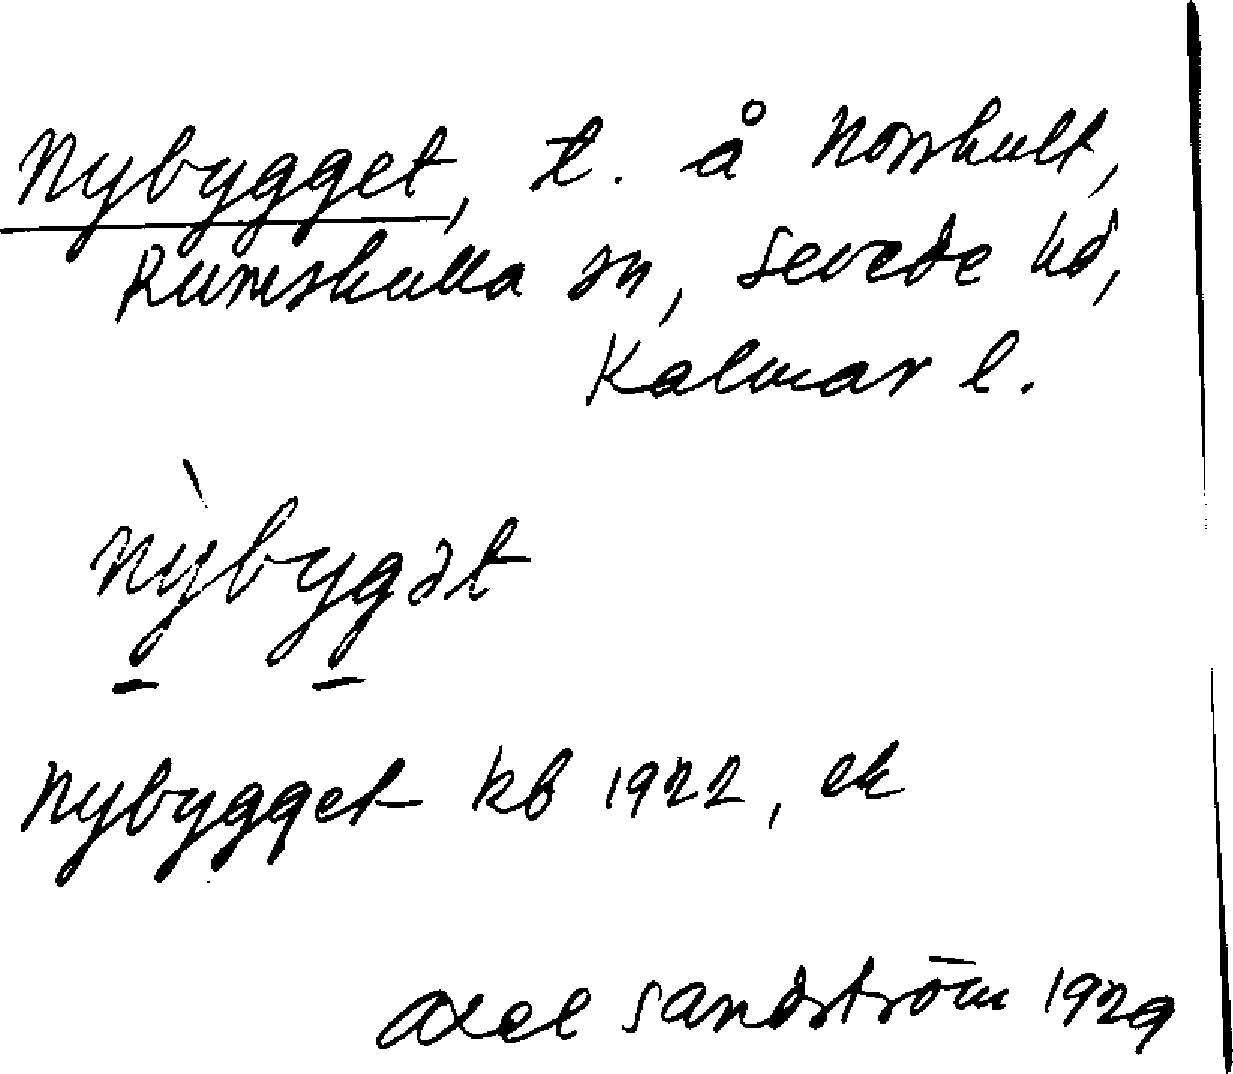 Nybygget, t. å Norrhult,
Rumskulla sn, Sevede hd,
Kalmar l.
nỳbygət
Nybygget kb 1922, ek
Axel Sandström 1929